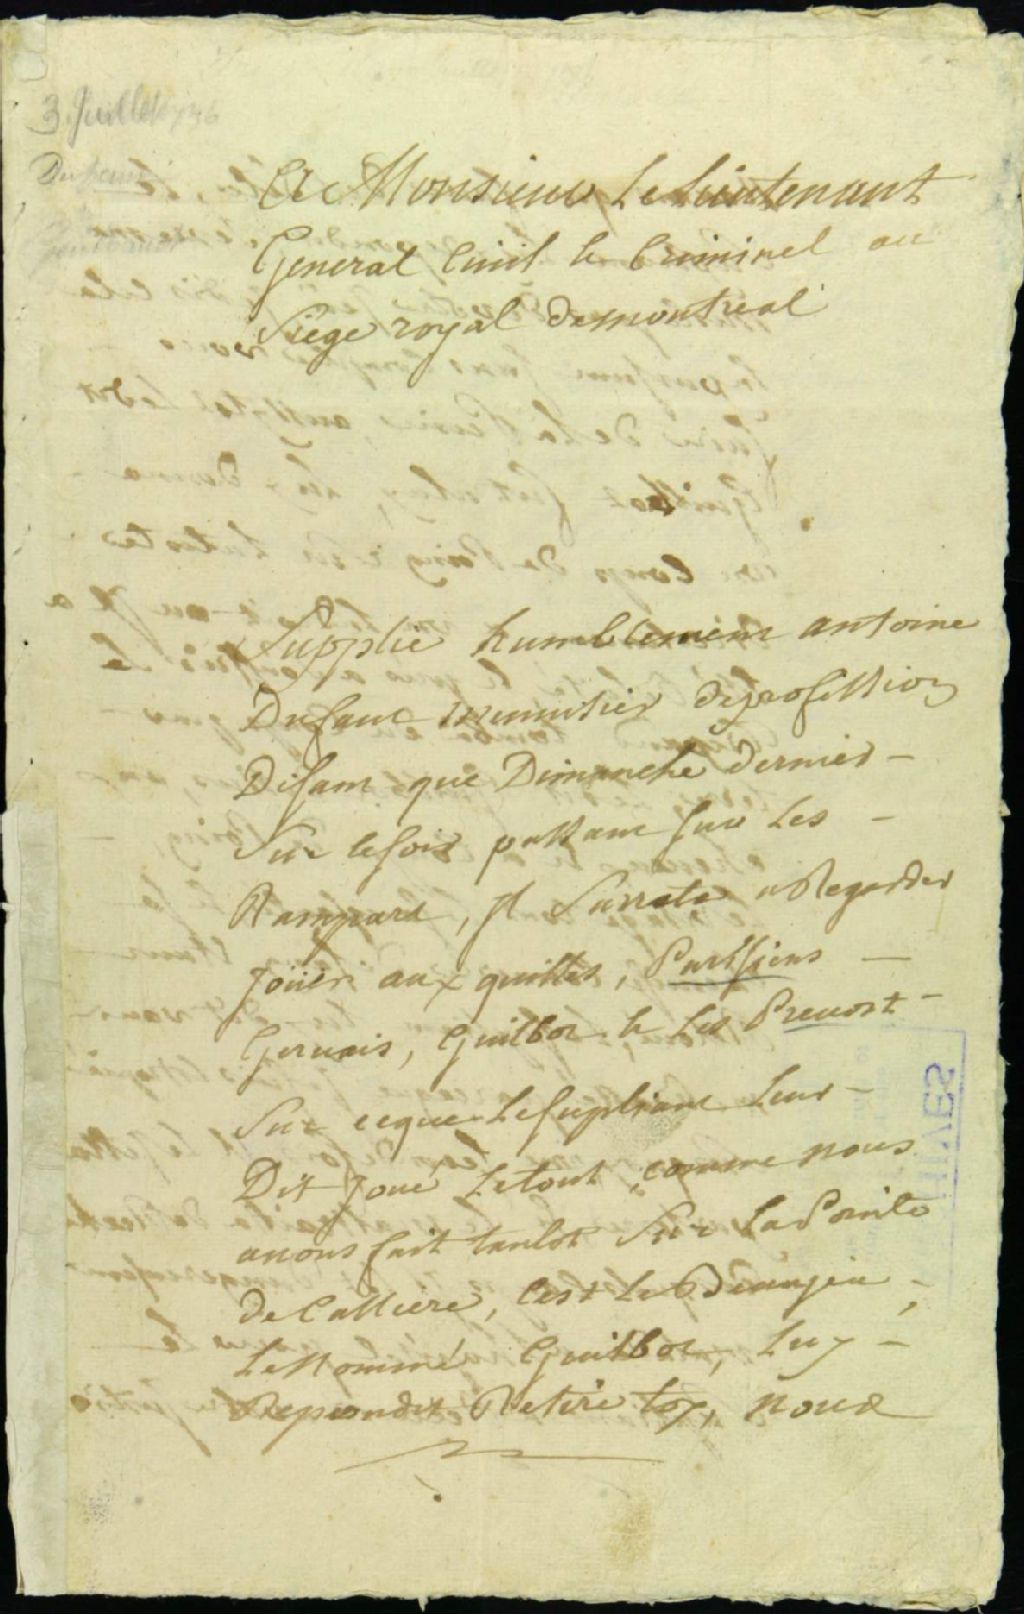 3 Juillet
A Monsieur Le Lieutenant
General Civil & Criminel au
Siege royal demontreal
Supplie humblement antoine
Dufaut menuisier deprofession
Disant que Dimanche dernier –
Sur lesoir passant sur Les –
Rampard, Il Sarreta a Regarder
Joüer aux quilles, Parisiens –
Gervais, Guilbot & Les Prevost –
Sur ceque Lesupliant Leur –
Dit Joué Letout comme nous
avons fait tantot Sur LaPointe
de Calliere, Cest Le Beaujeu,
LeNommé Guilbot, Luy –
Repondit Retire toy, nous
HIVES